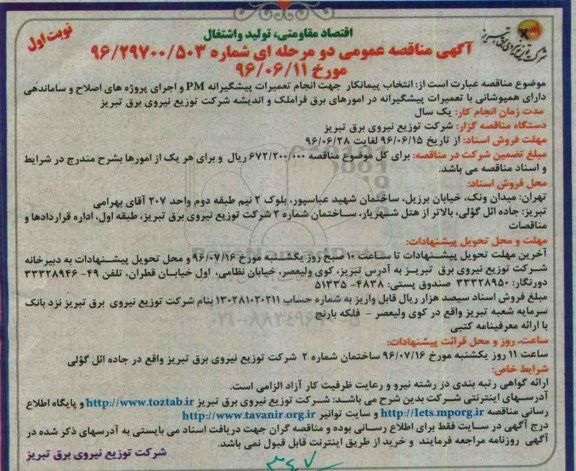 اقتصاد مقاومتی، تولید واشتغال
نوبت اول
آگهی مناقصه عمومی دو مرحله ای شماره ۹۶/۲۹۷۰۰/۵۰۳
مورخ ۹۶/۰۶/۱۱
موضوع مناقصه عبارت است از: انتخاب پیمانکار جهت انجام تعمیرات پیشگیرانه PM و اجرای پروژه های اصلاح و ساماندهی
دارای همپوشانی با تعمیرات پیشگیرانه در امورهای برق فراملک و اندیشه شرکت توزیع نیروی برق تبریز
مدت زمان انجام کار: یک سال
دستگاه مناقصه گزار: شرکت توزیع نیروی برق تبریز
مهلت فروش اسناد: از تاریخ ۹۶/۰۶/۱۵ لغایت ۹۶/۰۶/۲۸
مبلغ تضمین شرکت در مناقصه: برای کل موضوع مناقصه ۶۷۲/۲۰۰/۰۰۰ ریال و برای هر یک از امورها بشرح مندرج در شرایط
و اسناد مناقصه می باشد.
محل فروش اسناد:
تهران: میدان ونک، خیابان برزیل، ساختمان شهید عباسپور، بلوک ۲ نیم طبقه دوم واحد ۲۰۷ آقای بهرامی
تبریز: جاده ائل گؤلی، بالاتر از هتل شهریار، ساختمان شماره ۲ شرکت توزیع نیروی برق تبریز، طبقه اول، اداره قراردادها و
مناقصات
مهلت و محل تحویل پیشنهادات:
آخرین مهلت تحویل پیشنهادات تا ساعت ۱۰ صبح روز یکشنبه مورخ ۹۶/۰۷/۱۶ و محل تحویل پیشنهادات به دبیرخانه
شرکت توزیع نیروی برق تبریز به آدرس تبریز، کوی ولیعصر، خیابان نظامی، اول خیابان قطران، تلفن ۴۹- ۳۳۳۲۸۹۴۶
دورنگار: ۳۳۳۲۸۹۵۰ صندوق پستی: ۴۸۳۸- ۵۱۳۳۵
مبلغ فروش اسناد سیصد هزار ریال قابل واریز به شماره حساب ۱۳۰۲۸۱۰۲۰۲۱۱ بنام شرکت توزیع نیروی برق تبریز نزد بانک
سرمایه شعبه تبریز واقع در کوی ولیعصر - فلکه بارنج
با ارائه معرفینامه کتبی
ساعت، روز و محل قرائت پیشنهادات:
ساعت ۱۱ روز یکشنبه مورخ ۹۶/۰۷/۱۶ ساختمان شماره ۲ شرکت توزیع نیروی برق تبریز واقع در جاده ائل گؤلی
شرایط خاص:
ارائه گواهی رتبه بندی در رشته نیرو و رعایت ظرفیت کار آزاد الزامی است.
آدرسهای اینترنتی شرکت بدین شرح می باشد: شرکت توزیع نیروی برق تبریز http://www.toztab.ir و پایگاه اطلاع
رسانی مناقصه http://Iets.mporg.ir و سایت توانیر http://www.tavanir.org.ir
درج آگهی در سایت فقط برای اطلاع رسانی بوده و مناقصه گران جهت دریافت اسناد می بایستی به آدرسهای ذکر شده در
آگهی روزنامه مراجعه فرمایند و خرید از طریق اینترنت قابل قبول نمی باشد.
شرکت توزیع نیروی برق تبریز